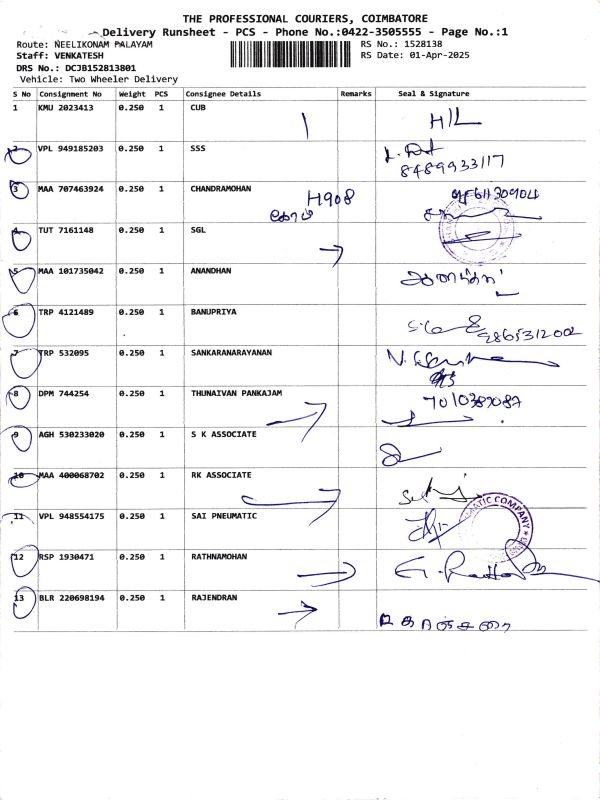 THE PROFESSIONAL COURIERS, COIMBATORE
Delivery Runsheet - PCS - Phone No.:0422-3505555 - Page No.:1
Route: NEELIKONAM PALAYAM RS No.: 1528138
Staff: VENKATESH RS Date: 01-Apr-2025
DRS No.: DCJB152813801
Vehicle: Two Wheeler Delivery
S No Consignment No Weight PCS Consignee Details Remarks Seal & Signature
1 KMU 2023413 0.250 1 CUB H/L
2 VPL 949185203 0.250 1 SSS
8489933117
3 MAA 707463924 0.250 1 CHANDRAMOHAN H908
4 TUT 7161148 0.250 1 SGL
5 MAA 101735042 0.250 1 ANANDHAN
6 TRP 4121489 0.250 1 BANUPRIYA
7 TRP 532095 0.250 1 SANKARANARAYANAN
8 DPM 744254 0.250 1 THUNAIVAN PANKAJAM
9 AGH 530233020 0.250 1 S K ASSOCIATE
10 MAA 400068702 0.250 1 RK ASSOCIATE
11 VPL 948554175 0.250 1 SAI PNEUMATIC
12 RSP 1930471 0.250 1 RATHNAMOHAN
13 BLR 220698194 0.250 1 RAJENDRAN